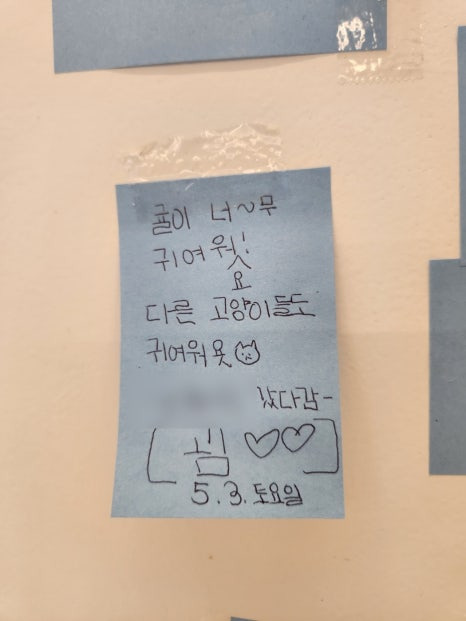 굴이 너~무
귀여웟!
요
다른 고양이들도
귀여워욧
갔다감-
[ ♡♡ ]
5.3.토요일